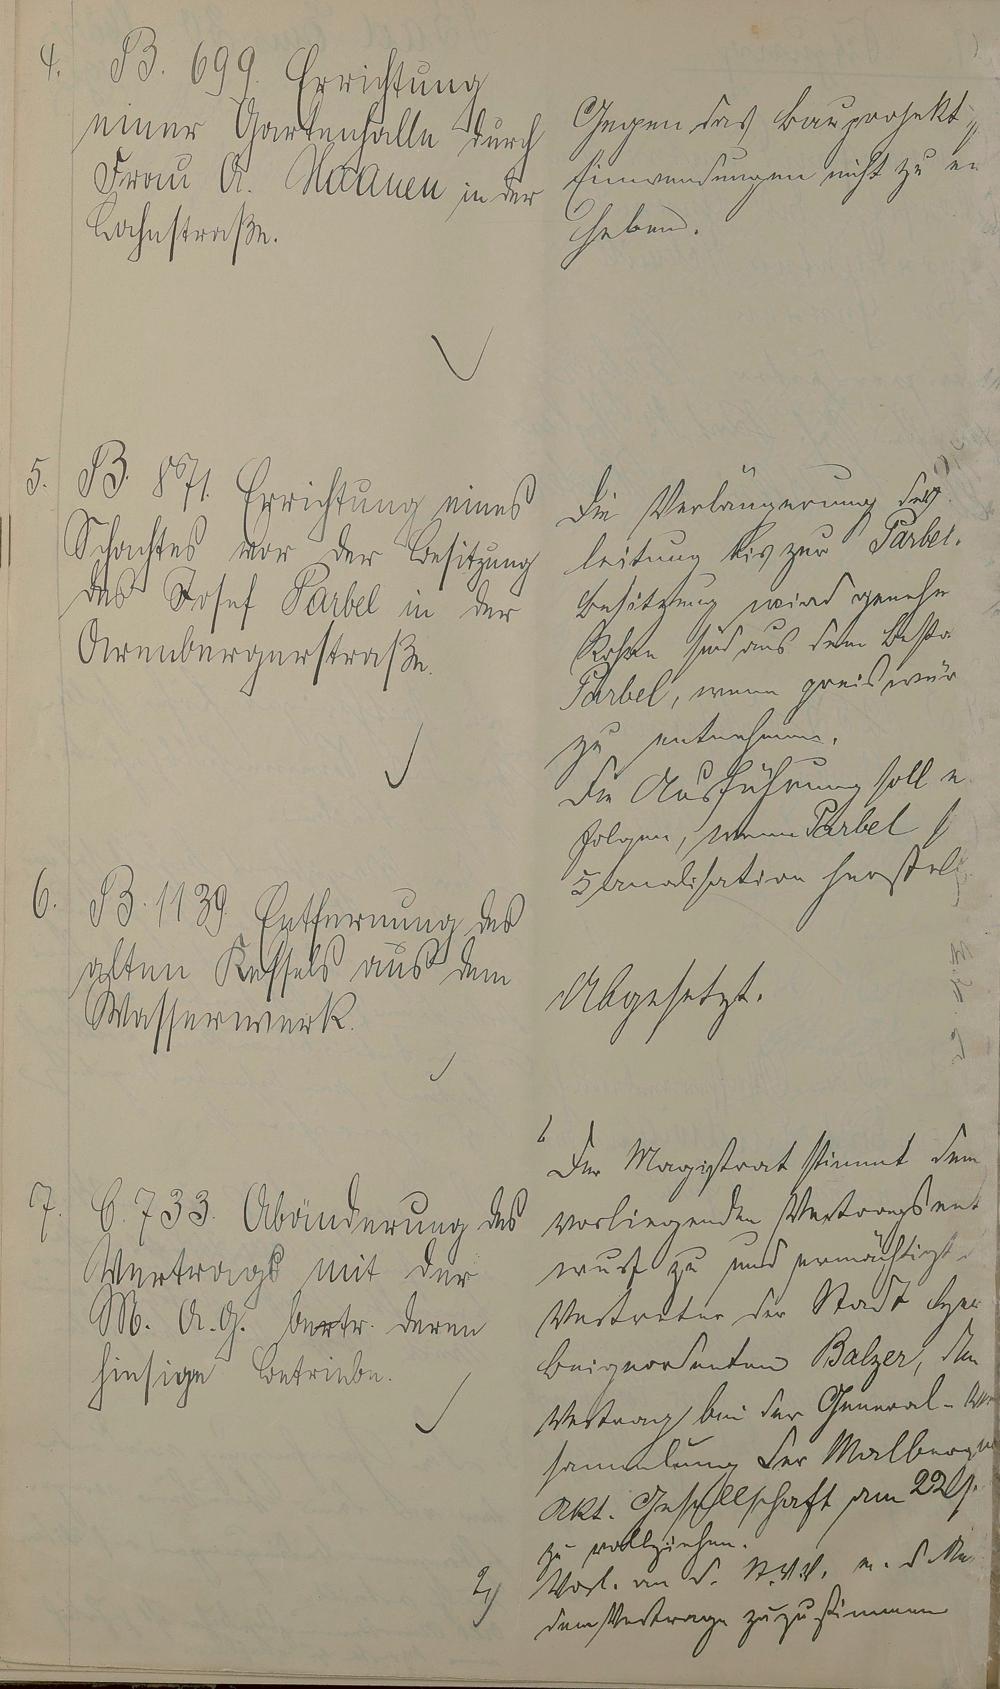 4. B. 699. Errichtung
einer Gartenhalle durch
Frau A. in der
Lahnstraße.
Gegen das Bauprojekt
Einwendungen nicht zu er
heben.
5. B. 871. Errichtung eines
Schachtes vor der Besitzung
des Josef Parbel in der
Arenbergerstraße.
Die Verlängerung der
leitung bis zur Parbel.
Besitzung wird geneh
Rohre sind aus dem Besta
Parbel, wenn preiswür
zu entnehmen.
Die Ausführung soll e
folgen, wenn Parbel
Kanalisation herstel
6. B. 1139. Entfernung des
alten Kessels aus dem
Wasserwerk.
Abgesetzt.
7. C. 733. Abänderung des
Vertrags mit der
M. A. G. betr. deren
hiesige Betriebe.
Der Magistrat stimmt dem
vorliegenden Vertragsent
wurf zu und ermächtigt
Vertreter der Stadt
Beigeordneten Balzer, den
Vertrag bei der General-
sammlung der Malberg
Akt. Gesellschaft am 22
zu vollziehen.
2) Vorl. an d. St.V.V. m. d.
dem Vertrage zuzustimmen